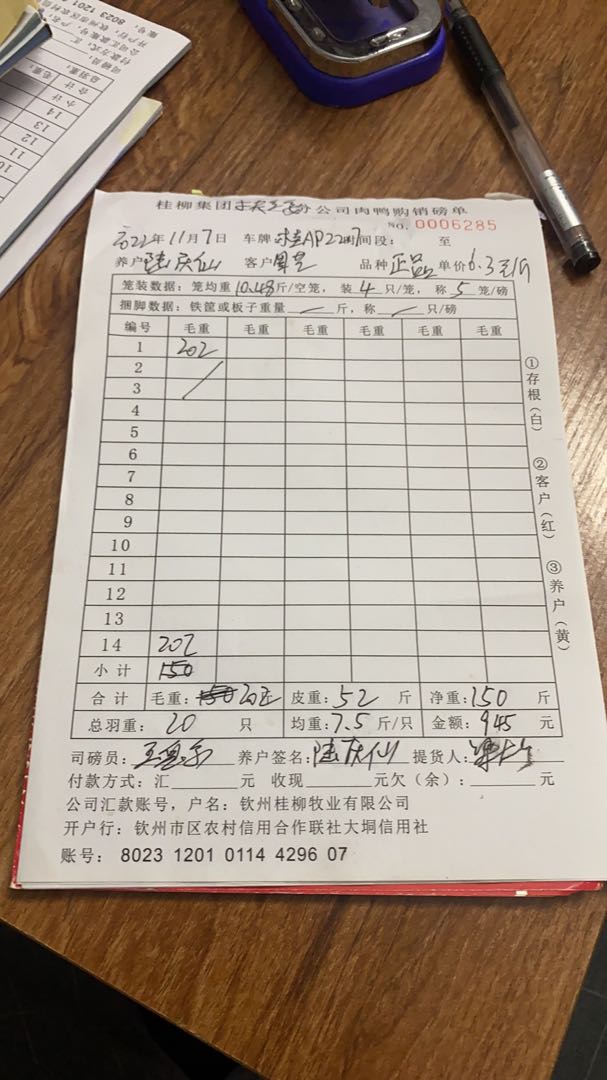 桂柳集团 分公司肉鸭购销磅单
No. 0006285
2022年11月7日 车牌 AP22 时间段： 至
养户 陆庆仙 客户 品种 正品 单价6.3元/斤
笼装数据：笼均重10.48斤/空笼，装4只/笼，称5笼/磅
捆脚数据：铁筐或板子重量 斤，称 只/磅
编号 毛重 毛重 毛重 毛重 毛重 毛重
1 202
2
3
4
5
6
7
8
9
10
11
12
13
14 202
小计 150
合计 毛重：150 202 皮重：52 斤 净重：150 斤
总羽重：20 只 均重：7.5斤/只 金额：945 元
司磅员： 养户签名：陆庆仙 提货人：
付款方式：汇 元 收现 元欠（余）： 元
公司汇款账号，户名：钦州桂柳牧业有限公司
开户行：钦州市区农村信用合作联社大垌信用社
账号：8023 1201 0114 4296 07
①存根（白）
②客户（红）
③养户（黄）